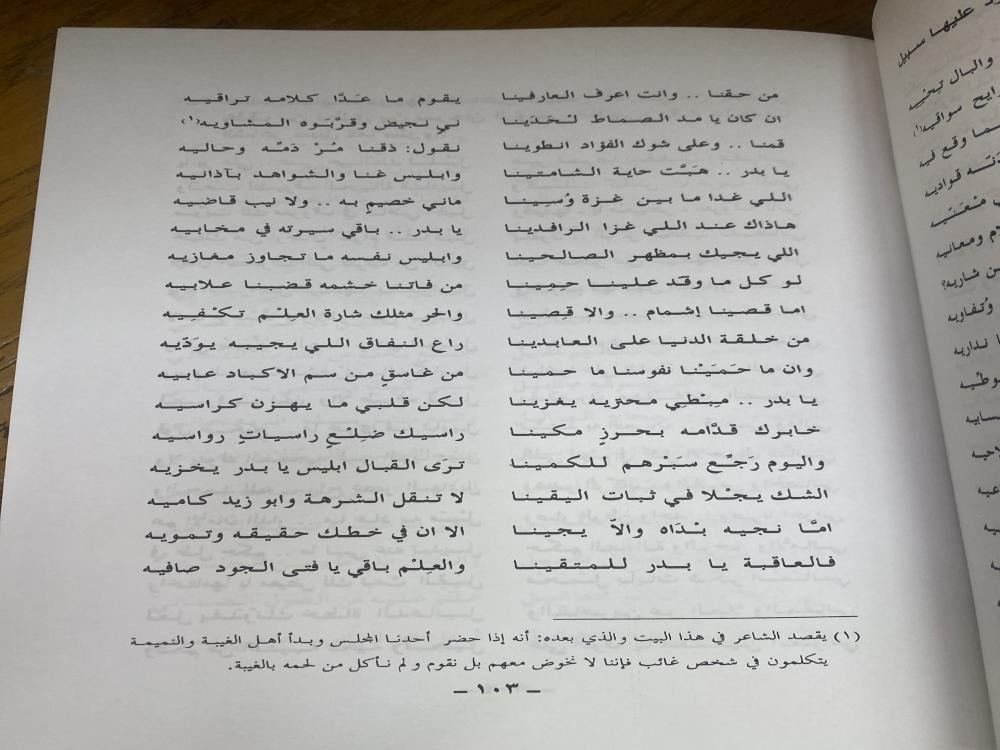 من حقنا .. وانت اعرف العارفينا يقوم ما عَدّا كلامه تراقيه
ان كان يا مد الصماط لْحَدّينا ني نجيض وقرّبَوه المشاويه(١)
قمنا .. وعلى شوك الفؤاد انطوينا نقول: ذقنا مُرْ دَمّه وحاليه
يا بدر .. هَبَّت حاية الشامتينا وابليس غنا والشواهد بآذانيه
اللي غدا ما بين غزة وُسِينا ماني خصيمٍ به .. ولا نيب قاضيه
هاذاك عند اللي غزا الرافدينا يا بدر .. باقي سيرته في مخابيه
اللي يجيك بمظهر الصالحينا وابليس نفسه ما تجاوز مغازيه
لو كل ما وقد علينا حِمِينا من فاتنا خشمه قضبنا علابيه
اما قصينا إشمام .. والا قِصِينا والحر مثلك شارة العِلْم تكْفيه
من خلقة الدنيا على العابدينا راع النفاق اللي يجيبه يوَدّيه
وان ما حمَيْنا نفوسنا ما حمينا من غاسقٍ من سم الاكباد عابيه
يا بدر .. مِبْطي محتريه يغزينا لكن قلبي ما يهزن كراسيه
خابرك قدّامه بحرزٍ مكينا راسيك ضِلْعٍ راسياتٍ رواسيه
واليوم رَجّع سَبْرهم للكمينا ترَى القبال ابليس يا بدر يخزيه
الشك يجْلا في ثبات اليقينا لا تنقل الشرهة وابو زيد كاميه
امّا نجيه بْدَاه والاّ يجينا الا ان في خطك حقيقه وتمويه
فالعاقبة يا بدر للمتقينا والعِلْم باقي يا فتى الجود صافيه
(١) يقصد الشاعر في هذا البيت والذي بعده: أنه إذا حضر أحدنا المجلس وبدأ أهل الغيبة والنميمة
يتكلمون في شخص غائب فإننا لا نخوض معهم بل نقوم ولم نأكل من لحمه بالغيبة.
– ١٠٣ –
عليها سبيل
والبال تخيه
رايح سواقيه(١)
ما وقع فيه
قواديه
مْعَنّيه
ومعانيه
شاريه؟
وُتْفاويه
نداريه